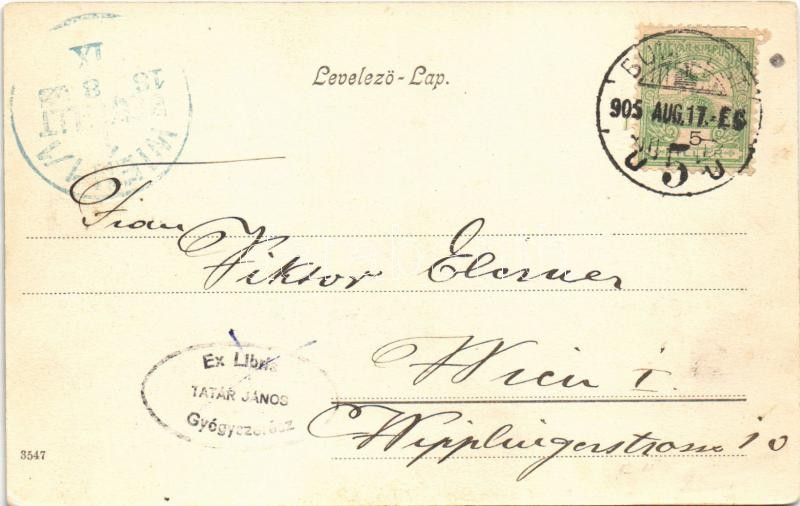 Levelező-Lap.
905 AUG.17.-E6
5
5
18 8
IX
WIEN
Frau
Viktor Elsner
Wien I.
Wipplingerstrasse 10
Ex Libris
TATÁR JÁNOS
Gyógyszerész
3547